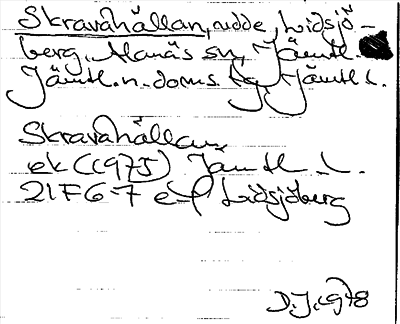 Skravahällan, udde, Lidsjö-
berg, Alanäs sn, Jämtl.
Jämtl. n. doms. tg, Jämtl. l.
Skravahällan
ek (1975) Jämtl. l.
21F6-7 ef Lidsjöberg
D.J. 1978